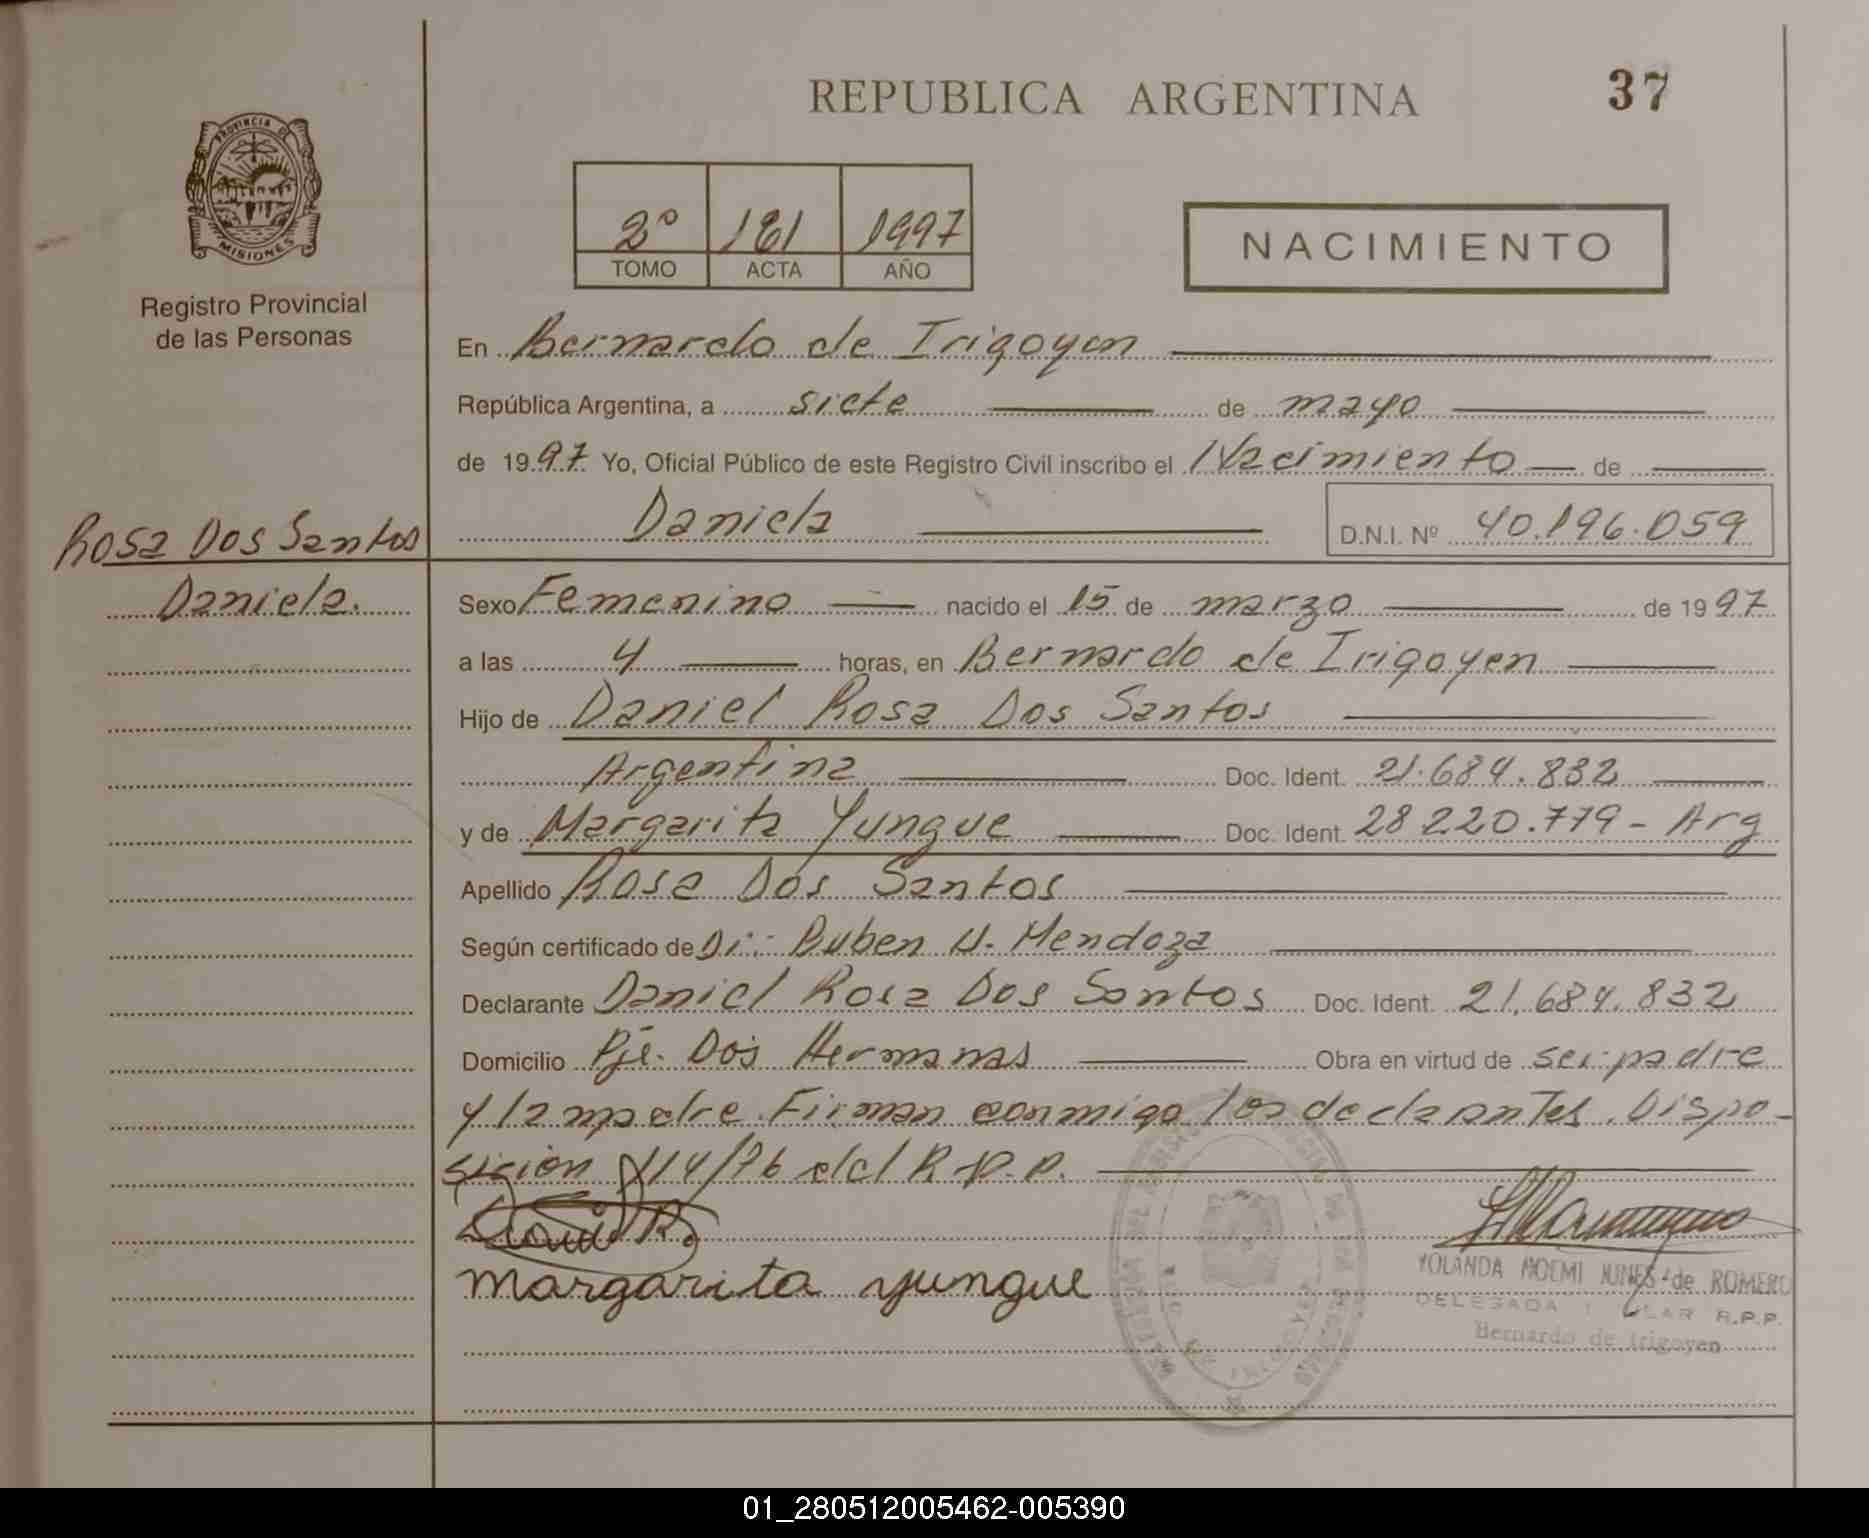 REPUBLICA ARGENTINA
37
PROVINCIA DE
MISIONES
Registro Provincial
de las Personas
2º 181 1997
TOMO ACTA AÑO
NACIMIENTO
En Bernardo de Irigoyen
República Argentina, a siete de mayo
de 1997 Yo, Oficial Público de este Registro Civil inscribo el Nacimiento de
Daniela D.N.I. Nº 40.196.059
Rosa Dos Santos
Daniela.
Sexo Femenino nacido el 15 de marzo de 1997
a las 4 horas, en Bernardo de Irigoyen
Hijo de Daniel Rosa Dos Santos
Argentina Doc. Ident. 21.684.832
y de Margarita Yungue Doc. Ident. 28 220.779 - Arg
Apellido Rosa Dos Santos
Según certificado de Ruben Mendoza
Declarante Daniel Rosa Dos Santos Doc. Ident. 21.684.832
Domicilio Pje. Dos Hermanas Obra en virtud de ser: padre
y la madre. Firman conmigo los declarantes. Dispo-
sición 114/76 del R.P.P.
Margarita yungue
YOLANDA NOEMI NUNES de ROMERO
DELEGADA R.P.P.
Bernardo de Irigoyen
01_280512005462-005390